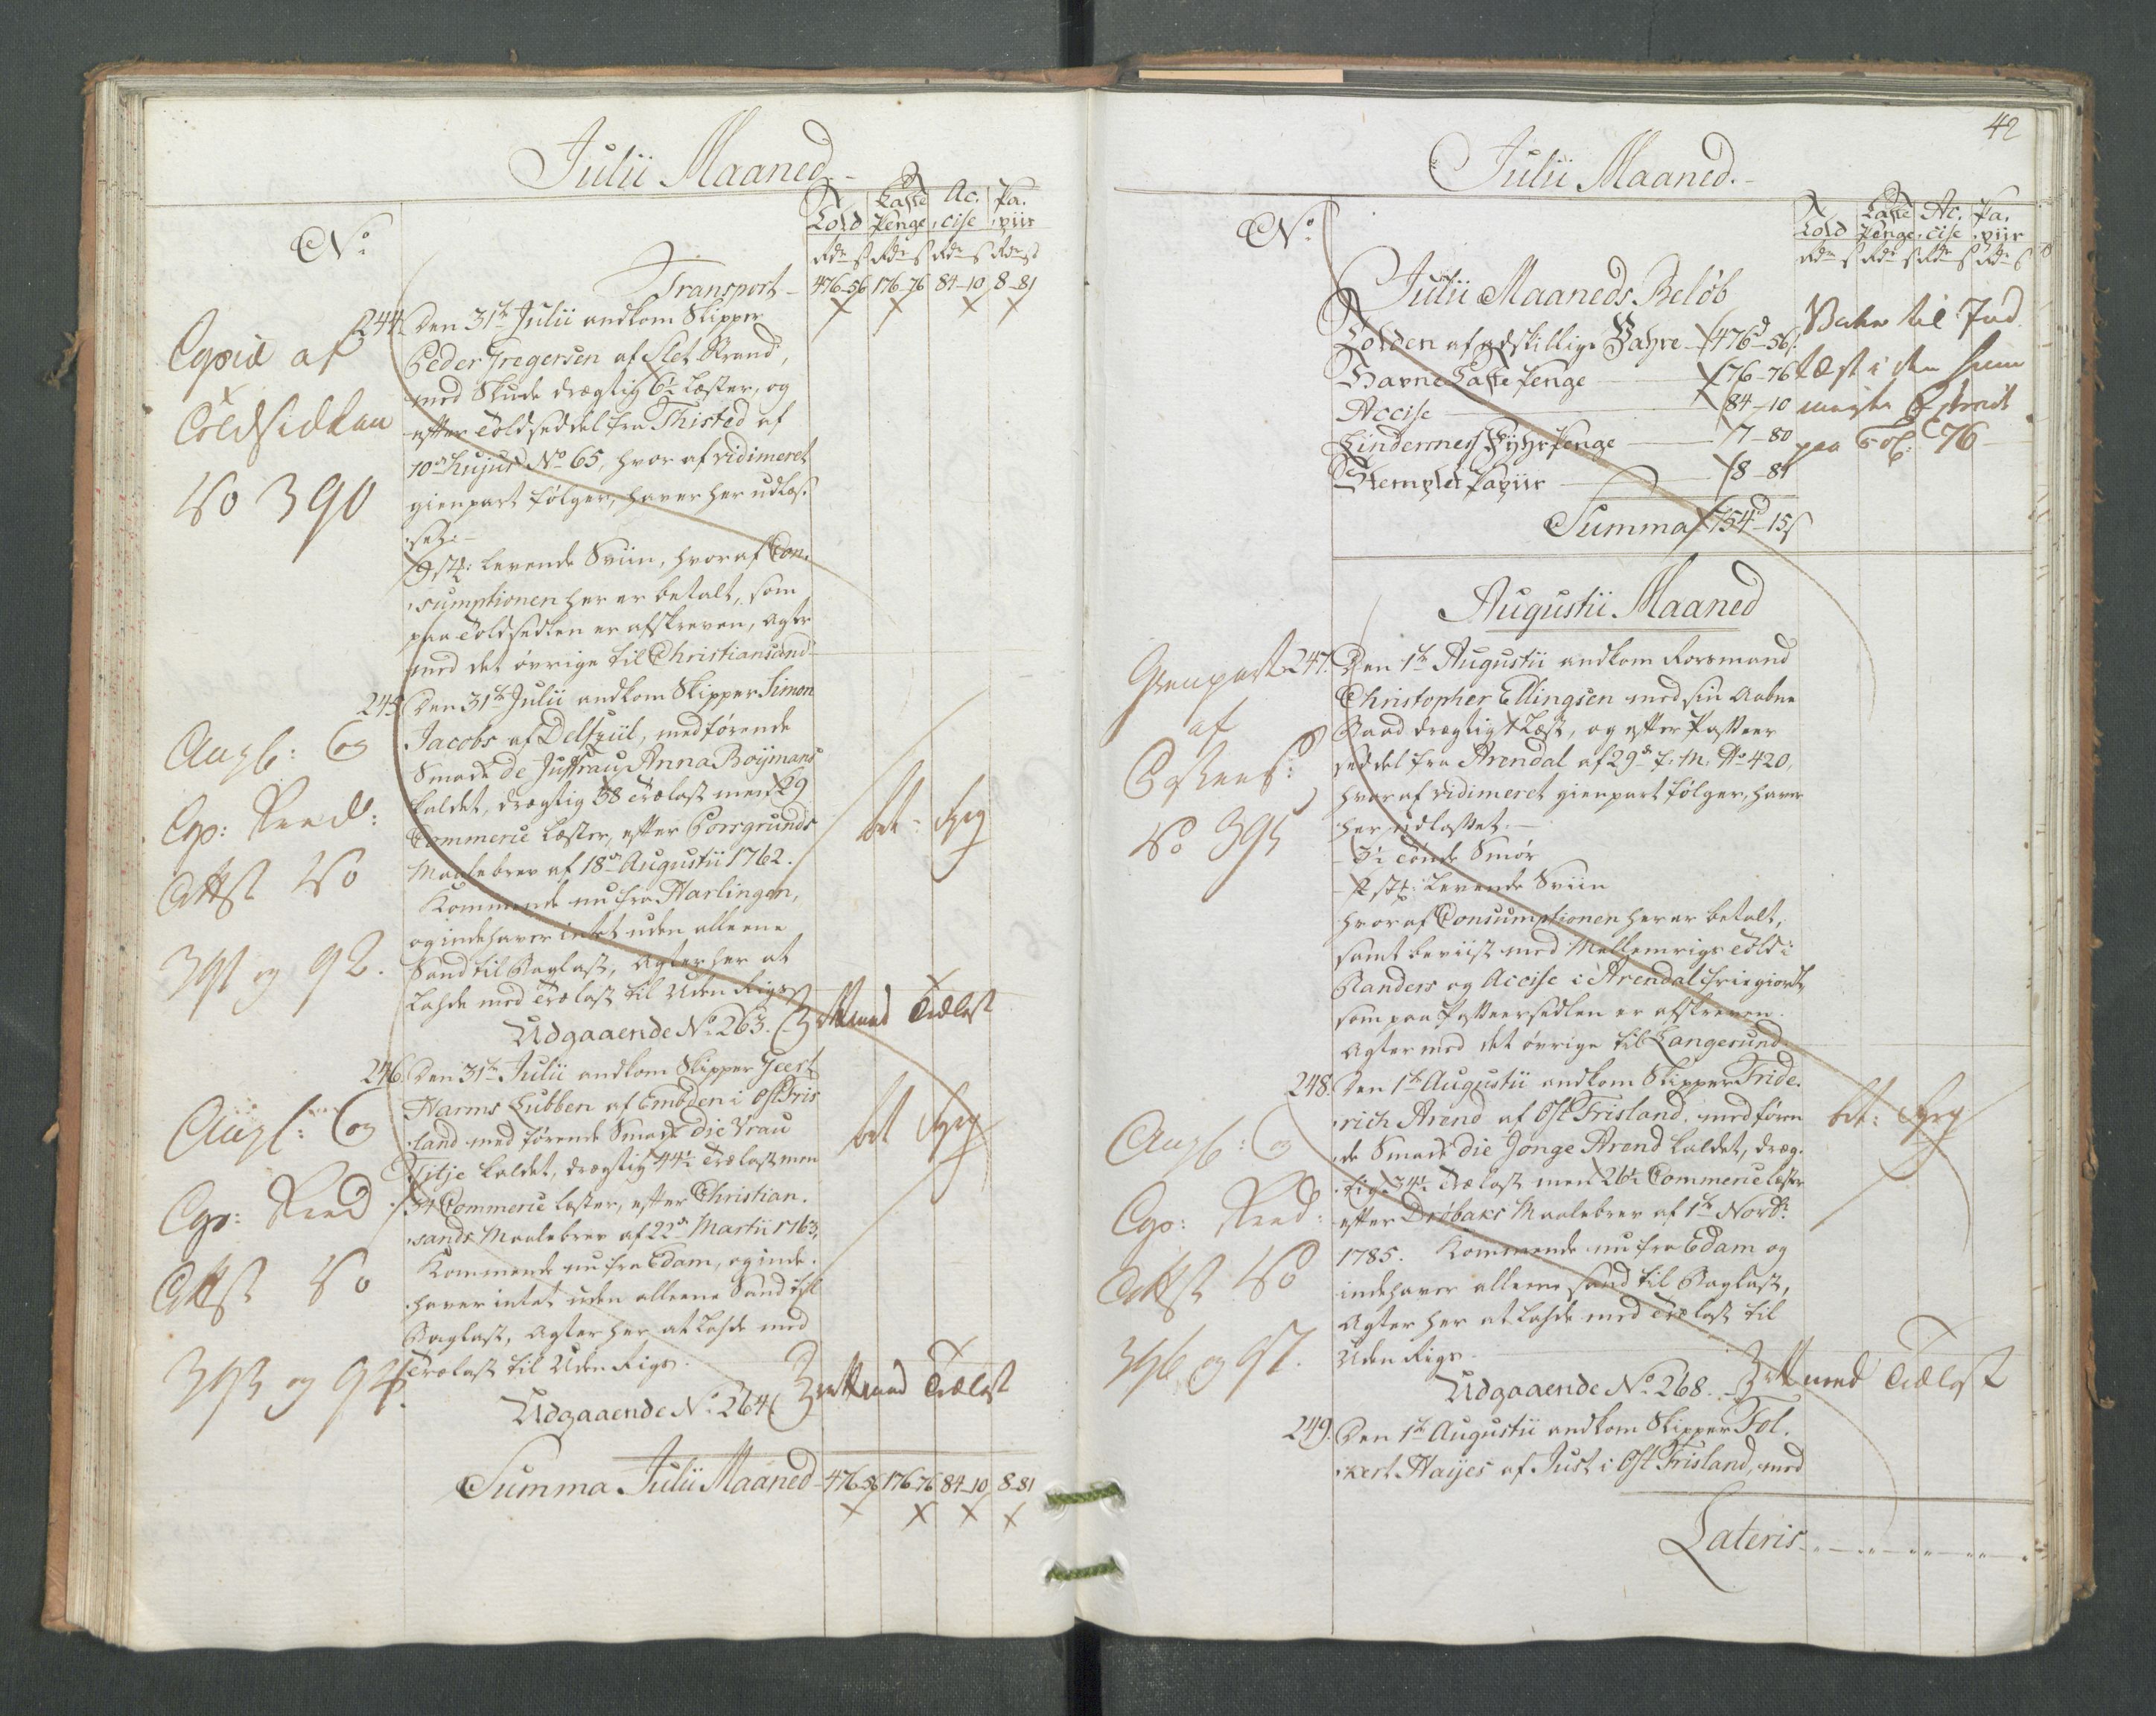 Julii Maaned.
Told Laste Penge Ac. cise Pa. piir
No
Rdr s Rdr s Rdr s Rdr s
Transport 476-56 176-76 84-10 8-81
Copia af
Toldsidlan
No 390
244. Den 31te Julii ankom Skipper
Peder Gregersen af Slet Strand,
med Skude drægtig 6½ Læster, og
efter Toldseddel fra Thisted af
10de hujus No 65, hvor af vidimeret
gienpart følger, haver her udlos
set:
9 stk: levende Sviin, hvoraf Con,
sumptionen her er betalt, som
paa Toldsedlen er afskreven, agter
med det øvrige til Christiansand
245. Den 31te Julii ankom Skipper Simon
Jacobs af Delfzuil, medførende
Smack de Juffrau Anna Boijmans
kaldet, drægtig 38 Trælast men 29
Commerce Læster, efter Porsgrunds
Maalebrev af 18de Augustii 1762.
Kommende nu fra Harlingen,
og indehaver intet uden alleene
Sand til Baglast, Agter her at
Lahde med Trælast til Uden Rigs
Udgaaende No 263.
med Trælast
Attst No
391 og 92.
246. Den 31te Julii ankom Skipper Geert
Harms Lubben af Embden i Ost Fris
land med førende Smack die Vrau
Titje kaldet, drægtig 44½ Trælast men
34 Commerce Læster, efter Christian.
sands Maalebrev af 22de Martii 1763,
Kommende nu fra Edam, og inde.
haver intet uden alleene Sand til
Baglast, Agter her at Lahde med
Trælast til Uden Rigs.
Udgaaende No 264
med Trælast
Attst No
393 og 94.
Summa Julii Maaned 476-56 176-76 84-10 8-81
42
Julii Maaned.
Told Laste Penge Ac. cise Pa. piir
No
Rdr s Rdr s Rdr s Rdr s
Julii Maaneds Beløb
Tolden af adskillige Vahre 476d-56s
Havne Laste Penge 176-76
Accise 84-10
Lindernes Fyhr Penge 7-80
Stemplet Papiir 8-81
Summa 754d-15s
paa Fol: 76
Augustii Maaned
Gienpart
af
No 395
247. Den 1te Augustii ankom Rorsmand
Christopher Ellingsen med sin Aabne
Baad drægtig 1 Læst, og efter Passeer
seddel fra Arendal af 29de f: M: No 420,
hvoraf vidimeret gienpart følger, haver
her udlosset.
3½ Tønde Smør
2 stk: levende Sviin
hvoraf Consumptionen her er betalt,
samt beviist med Mellemrigs Told i
Randers og Accise i Arendal friegiordt,
som paa Passeersedlen er afskreven.
Agter med det øvrige til Langesund.
248. Den 1te Augustii ankom Skipper Fride.
rich Arend af Ost Frisland, medføren
de Smack die Jonge Arend kaldet, dræg.
tig 34½ Trælast men 26½ Commerce Læster
efter Drøbaks Maalebrev af 1te Novbr
1785. Kommende nu fra Edam og
indehaver alleene sand til Baglast,
Agter her at Lahde med Trælast til
Uden Rigs.
Udgaaende No 268.
med Trælast
Attst No
396 og 97.
249. Den 1te Augustii ankom Skipper Fol.
kert Haijes af Just i Ost Frisland, med
Lateris